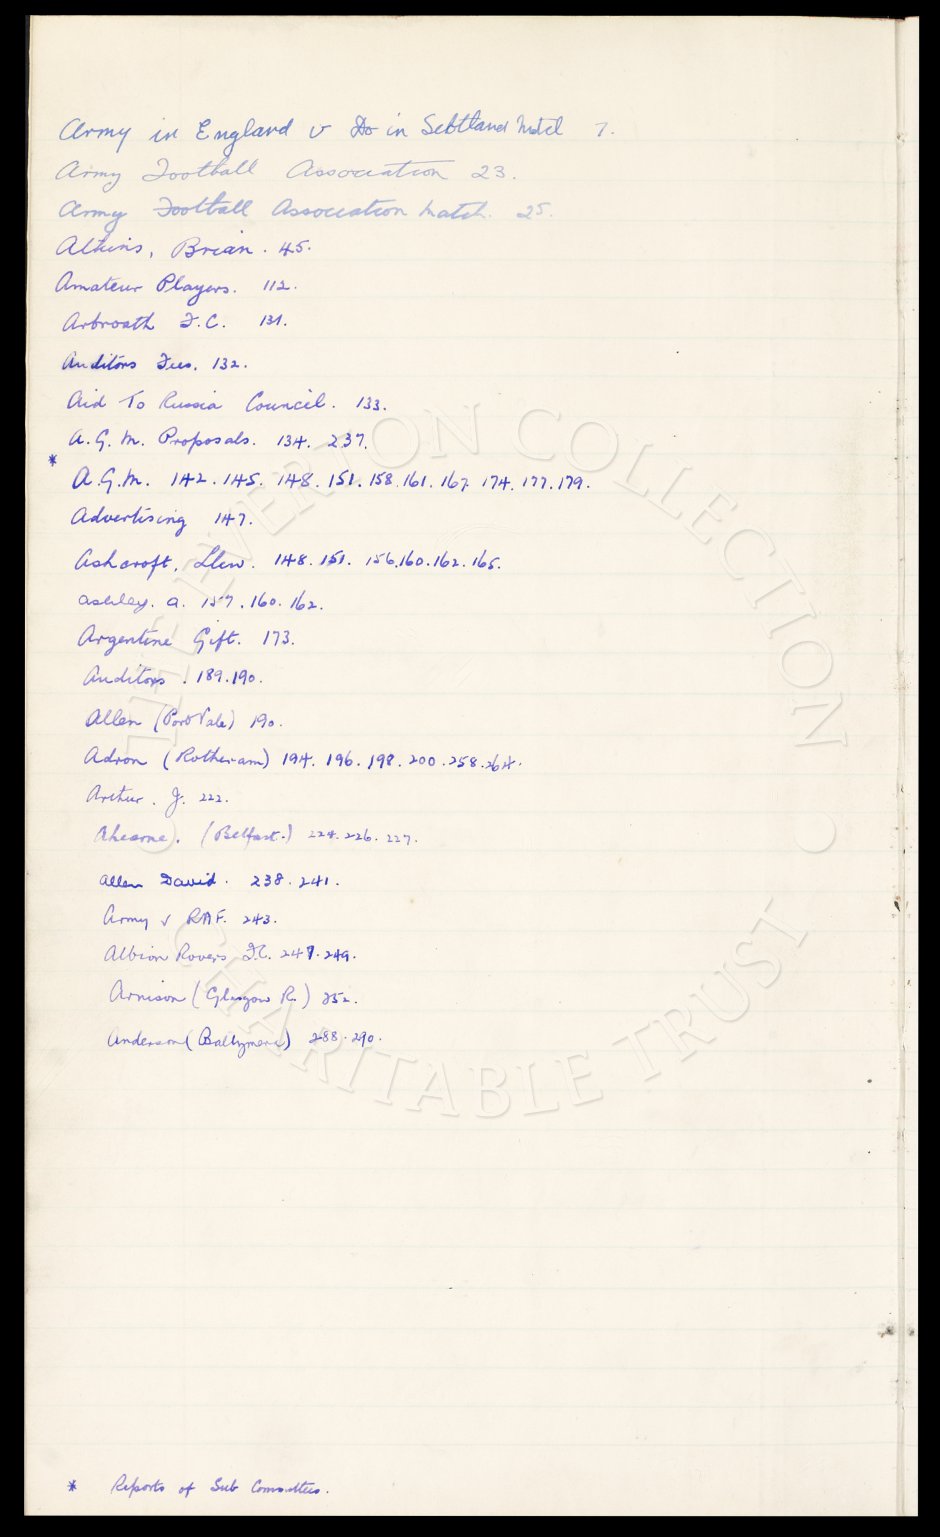 Army in England v Do in Scotland Match 7.
Army Football Association 23.
Army Football Association Match. 25.
Atkins, Brian. 45.
Amateur Players. 112.
Arbroath F.C. 131.
Auditors Fees. 132.
Aid To Russia Council. 133.
A.G.M. Proposals. 134. 237.
* A.G.M. 142. 145. 148. 151. 158. 161. 167. 174. 177. 179.
Advertising 147.
Ashcroft, Llew. 148. 151. 156. 160. 162. 165.
Ashley. A. 157. 160. 162.
Argentine Gift. 173.
Auditors. 189. 190.
Allen (Port Vale) 190.
Adron (Rotheram) 194. 196. 198. 200. 258. 264.
Arthur. J. 222.
Ahearne. (Belfast.) 224. 226. 227.
Allen David. 238. 241.
Army v RAF. 243.
Albion Rovers F.C. 247. 249.
Arnison (Glasgow R.) 252.
Anderson (Ballymena) 288. 290.
* Reports of Sub Committees.
THE EVERTON COLLECTION
CHARITABLE TRUST